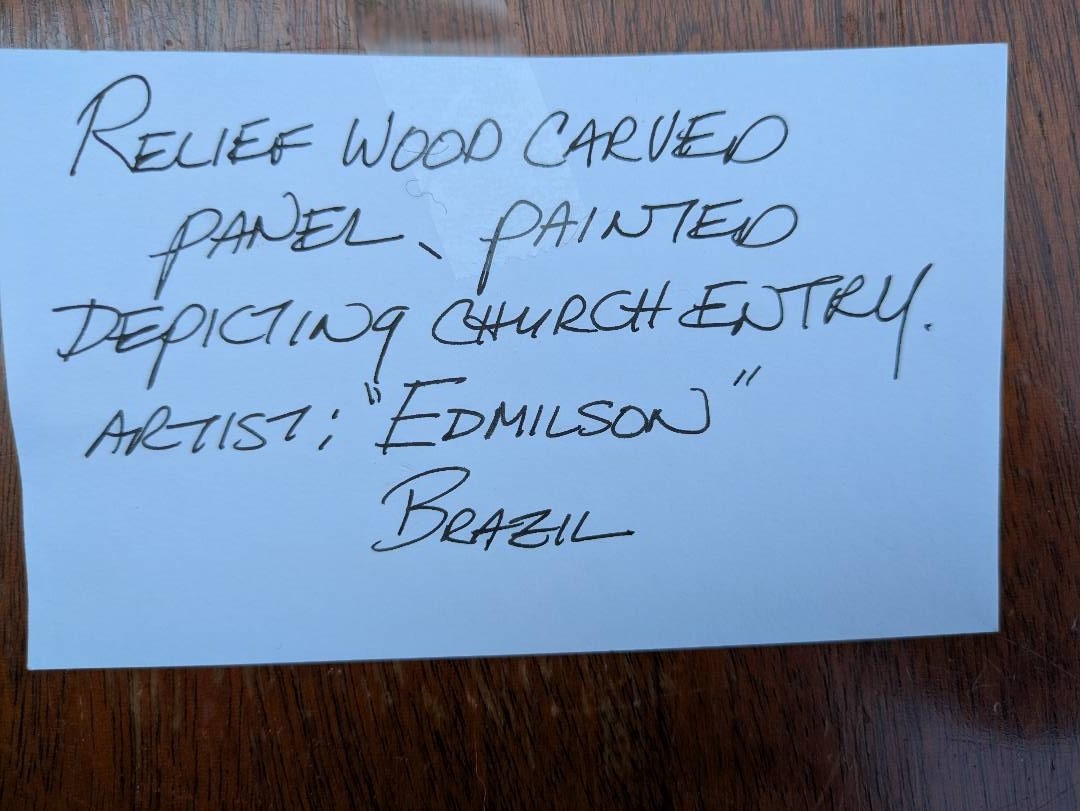 RELIEF WOOD CARVED
PANEL, PAINTED
DEPICTING CHURCH ENTRY.
ARTIST: "EDMILSON"
BRAZIL